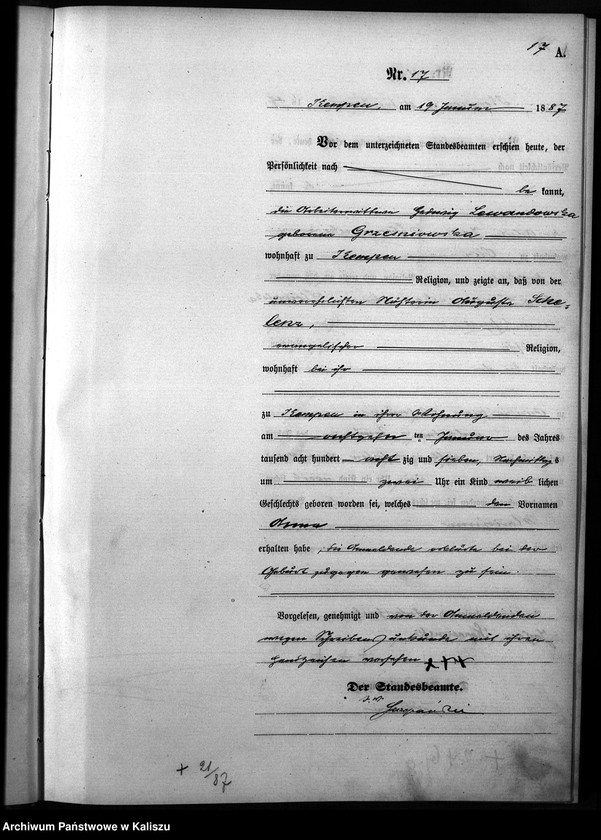 17 A.
Nr. 17
Kempen, am 19. Januar 1887
Vor dem unterzeichneten Standesbeamten erschien heute, der
Persönlichkeit nach
be kannt,
die Arbeiterwittwe Hedwig Lewandowska
geborene Grzesniowska
wohnhaft zu Kempen
Religion, und zeigte an, daß von der
unverehelichten Nähterin Auguste Sche-
lenz,
evangelischer Religion,
wohnhaft bei ihr
zu Kempen in ihrer Wohnung
am achtzehn ten Januar des Jahres
tausend acht hundert acht zig und sieben, Nachmittags
um zwei Uhr ein Kind weib lichen
Geschlechts geboren worden sei, welches den Vornamen
Anna
erhalten habe, die Anmeldende erklärte bei der
Geburt zugegen gewesen zu sein.
Vorgelesen, genehmigt und von der Anmeldenden
wegen Schreibens unkunde mit ihren
Handzeichen versehen +++
Der Standesbeamte.
+ 21/87
Archiwum Państwowe w Kaliszu